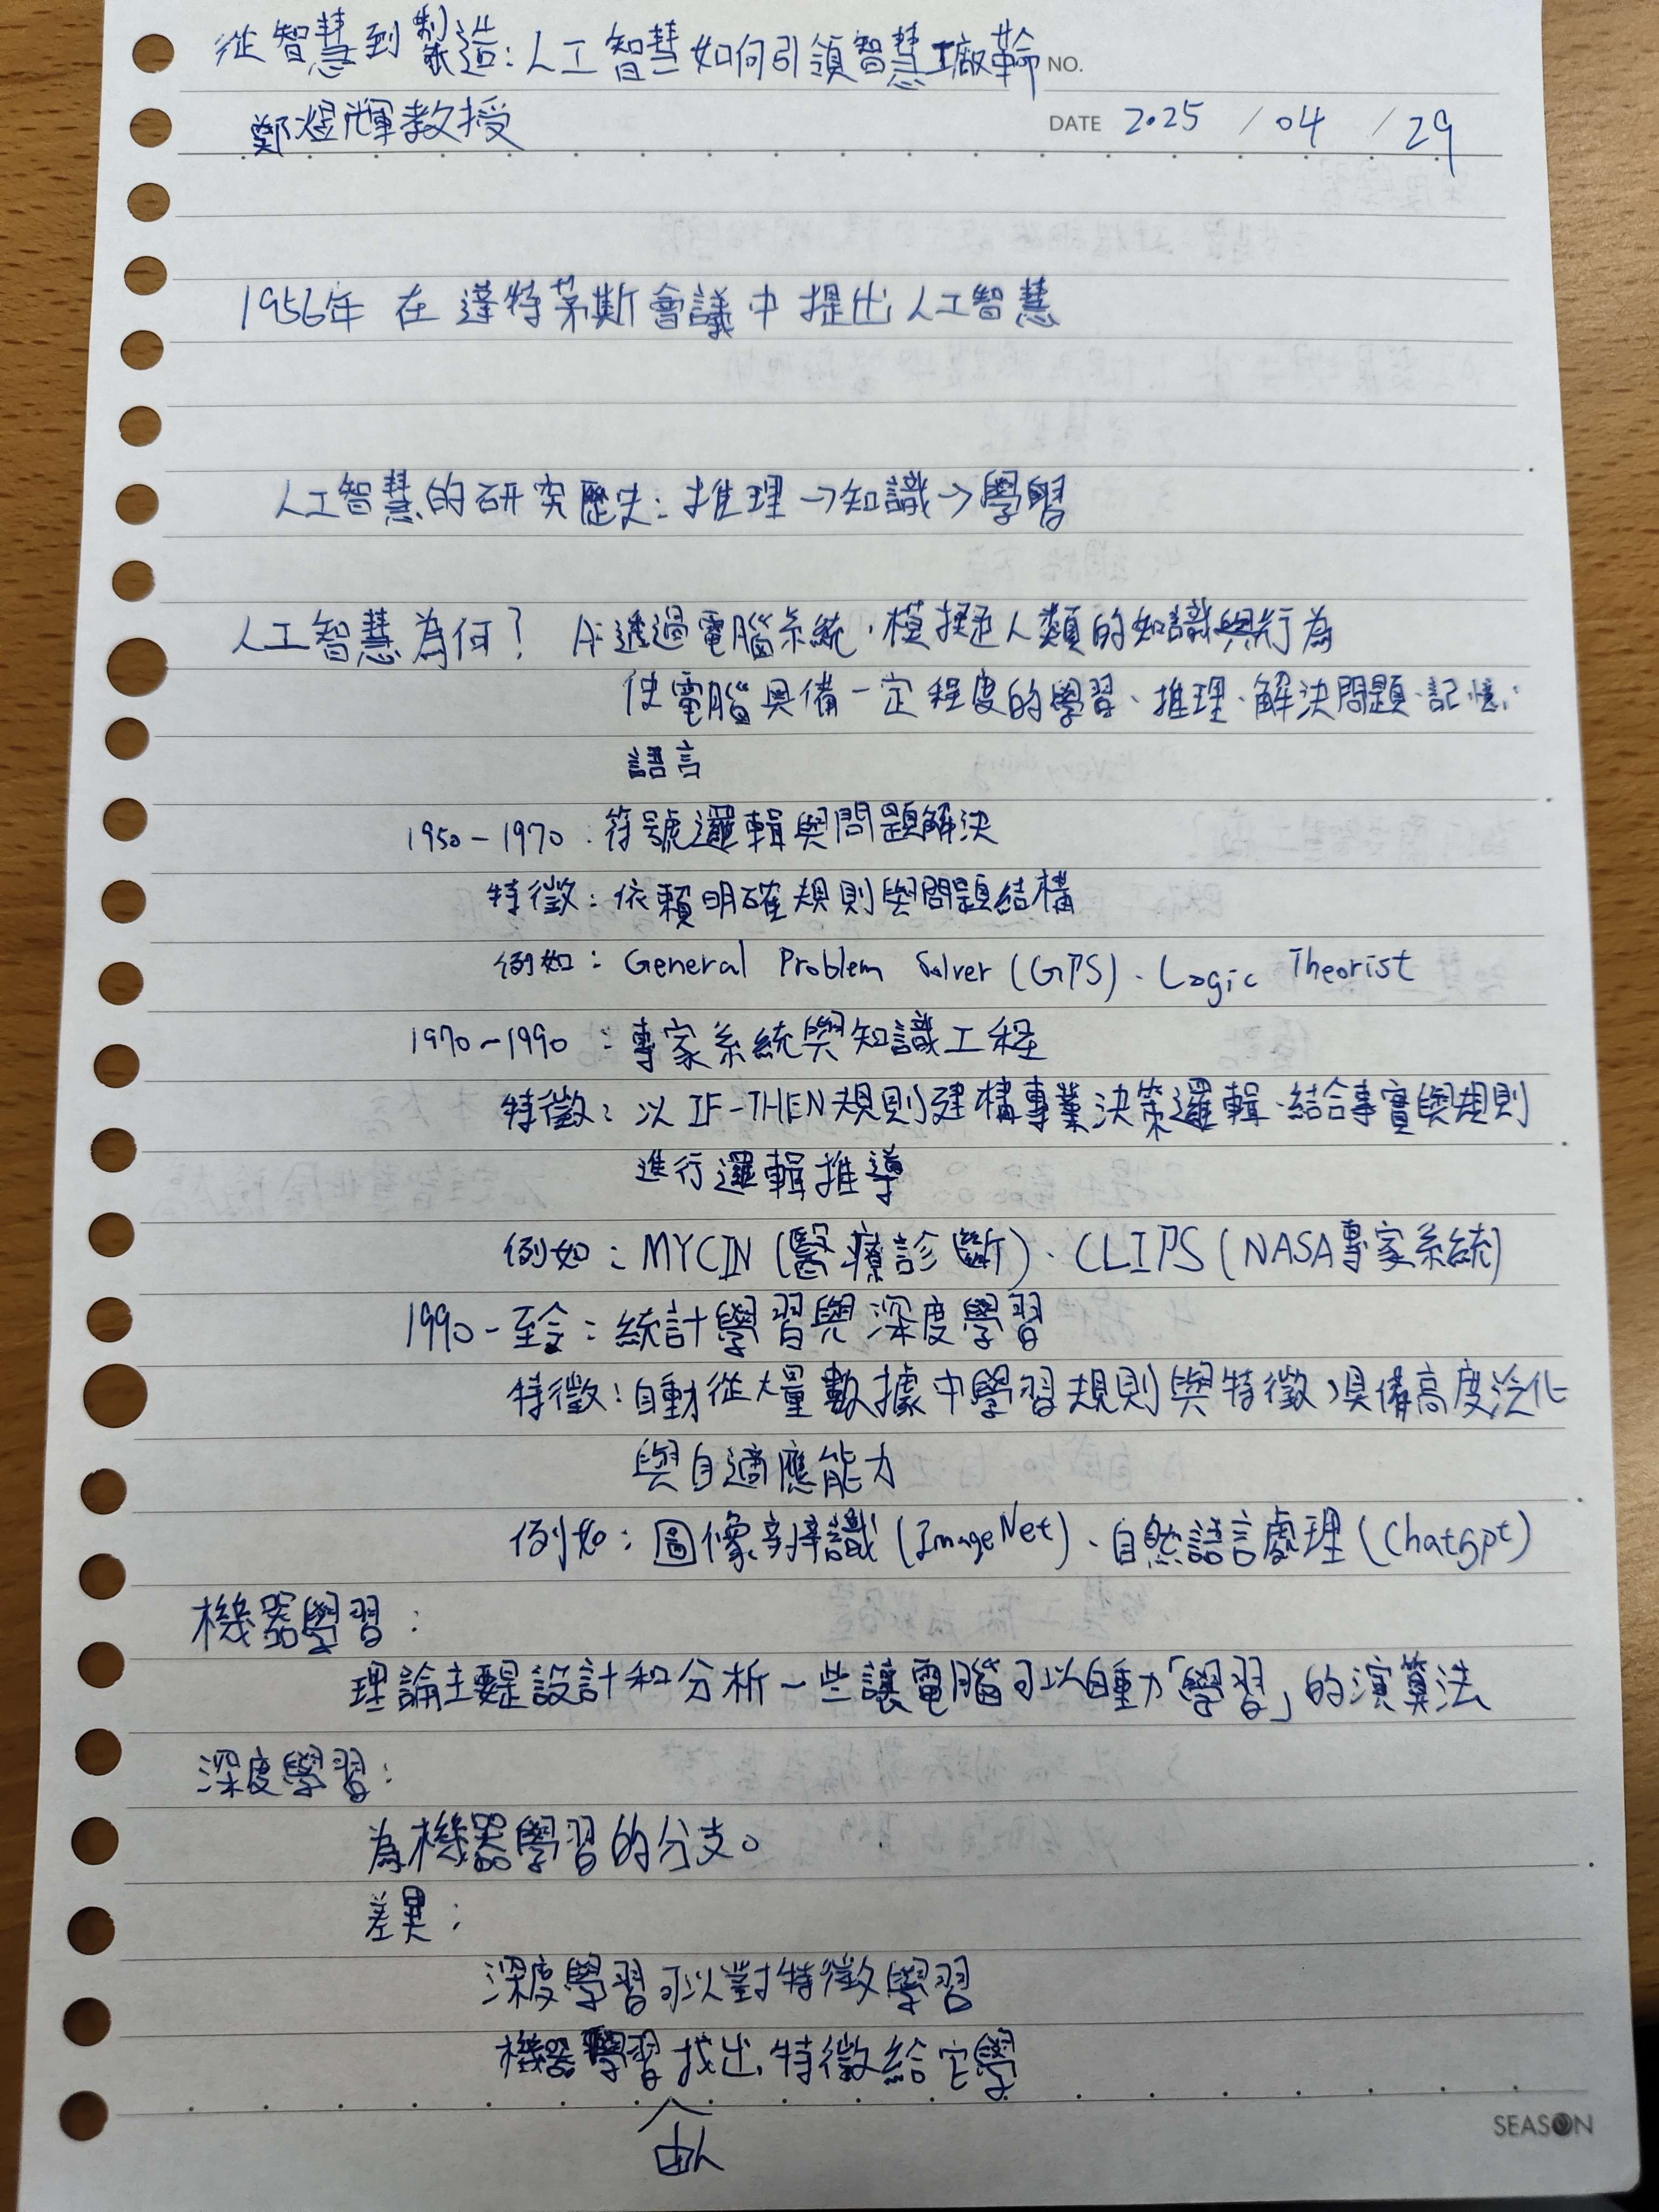 從智慧到製造:人工智慧如何引領智慧工廠革命
NO.
鄭煜輝教授
DATE 2025/04/29
1956年 在達特茅斯會議中提出人工智慧
人工智慧的研究歷史:推理→知識→學習
人工智慧為何? A:透過電腦系統,模擬人類的知識與行為
使電腦具備一定程度的學習、推理、解決問題、記憶、
語言
1950-1970:符號邏輯與問題解決
特徵:依賴明確規則與問題結構
例如:General Problem Solver(GPS)、Logic Theorist
1970~1990:專家系統與知識工程
特徵:以IF-THEN規則建構專業決策邏輯、結合事實與規則
進行邏輯推導
例如:MYCIN(醫療診斷)、CLIPS(NASA專家系統)
1990-至今:統計學習與深度學習
特徵:自動從大量數據中學習規則與特徵,具備高度泛化
與自適應能力
例如:圖像辨識(ImageNet)、自然語言處理(Chatgpt)
機器學習:
理論主要是設計和分析一些讓電腦可以自動「學習」的演算法
深度學習:
為機器學習的分支。
差異:
深度學習可以對特徵學習
機器學習找出特徵給它學
由人
SEASON